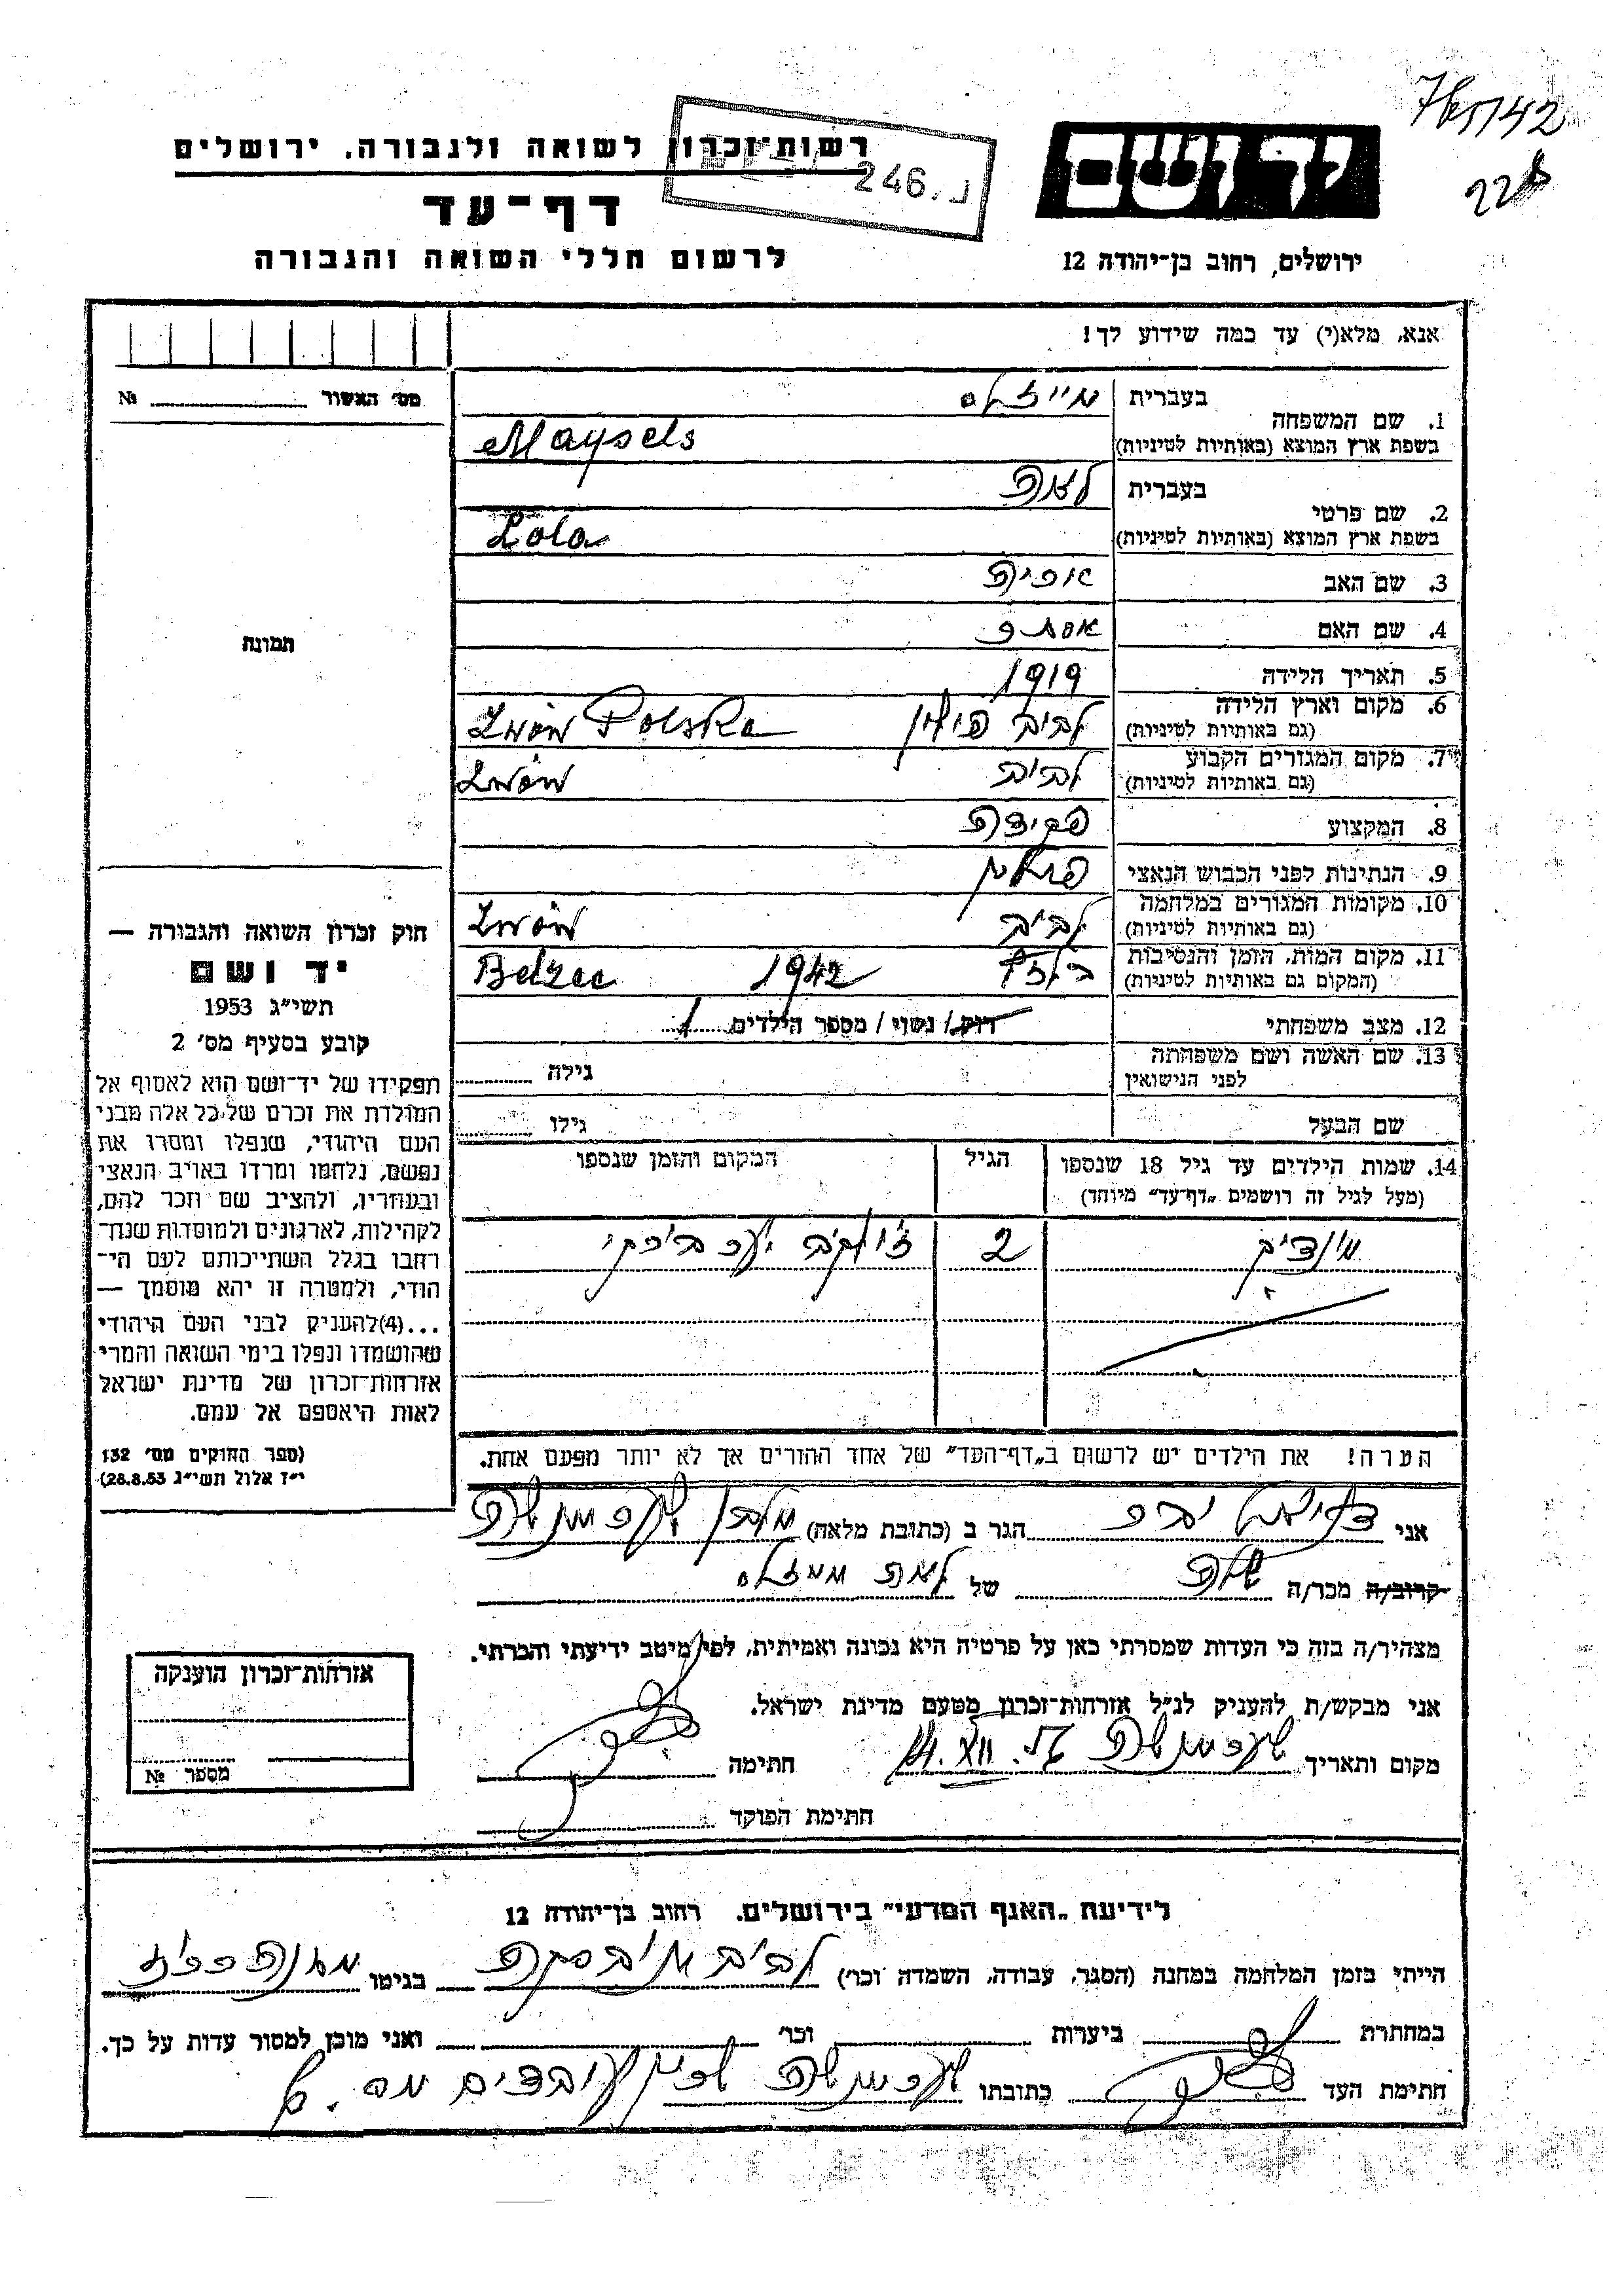 765/42
228
רשות־זכרון לשואה ולגבורה, ירושלים
246
דף־עד
לרשום חללי השואה והגבורה
יד ושם
ירושלים, רחוב בן־יהודה 12
אנא, מלא(י) עד כמה שידוע לך!
מס׳ האשור №
1. שם המשפחה
בעברית מייזלס
בשפת ארץ המוצא (באותיות לטיניות) Maysels
2. שם פרטי
בעברית
בשפת ארץ המוצא (באותיות לטיניות) Lola
3. שם האב
4. שם האם
5. תאריך הלידה 1919
6. מקום וארץ הלידה (גם באותיות לטיניות) לבוב פולין Lwów Polska
7. מקום המגורים הקבוע (גם באותיות לטיניות) לבוב Lwów
8. המקצוע פקידה
9. הנתינות לפני הכבוש הנאצי פולין
10. מקומות המגורים במלחמה (גם באותיות לטיניות) לבוב Lwów
11. מקום המות, הזמן והנסיבות (המקום גם באותיות לטיניות) בלזץ 1942 Belzec
12. מצב משפחתי רוק/ נשוי / מספר הילדים 1
13. שם האשה ושם משפחתה לפני הנישואין גילה
שם הבעל גילו
14. שמות הילדים עד גיל 18 שנספו (מעל לגיל זה רושמים „דף־עד״ מיוחד) הגיל המקום והזמן שנספו
2
הערה! את הילדים יש לרשום ב„דף־העד״ של אחד ההורים אך לא יותר מפעם אחת.
תמונה
חוק זכרון השואה והגבורה —
יד ושם
תשי״ג 1953
קובע בסעיף מס׳ 2
תפקידו של יד־ושם הוא לאסוף אל
המולדת את זכרם של כל אלה מבני
העם היהודי, שנפלו ומסרו את
נפשם, נלחמו ומרדו באויב הנאצי
ובעוזריו, ולהציב שם וזכר להם,
לקהילות, לארגונים ולמוסדות שנח־
רבו בגלל השתייכותם לעם הי־
הודי, ולמטרה זו יהא מוסמך —
...(4)להעניק לבני העם היהודי
שהושמדו ונפלו בימי השואה והמרי
אזרחות־זכרון של מדינת ישראל
לאות היאספם אל עמם.
(ספר החוקים מס׳ 132
י״ז אלול תשי״ג 28.8.53)
אני הגר ב (כתובת מלאה)
קרוב/ה מכר/ה של מייזלס
מצהיר/ה בזה כי העדות שמסרתי כאן על פרטיה היא נכונה ואמיתית, לפי מיטב ידיעתי והכרתי.
אני מבקש/ת להעניק לנ״ל אזרחות־זכרון מטעם מדינת ישראל.
מקום ותאריך חתימה
חתימת הפוקד
אזרחות־זכרון הוענקה
מספר №
לידיעת „האגף המדעי״ בירושלים, רחוב בן־יהודה 12
הייתי בזמן המלחמה במחנה (הסגר, עבודה, השמדה וכר׳) לבוב בגיטו
במחתרת ביערות וכר׳ ואני מוכן למסור עדות על כך.
חתימת העד כתובתו